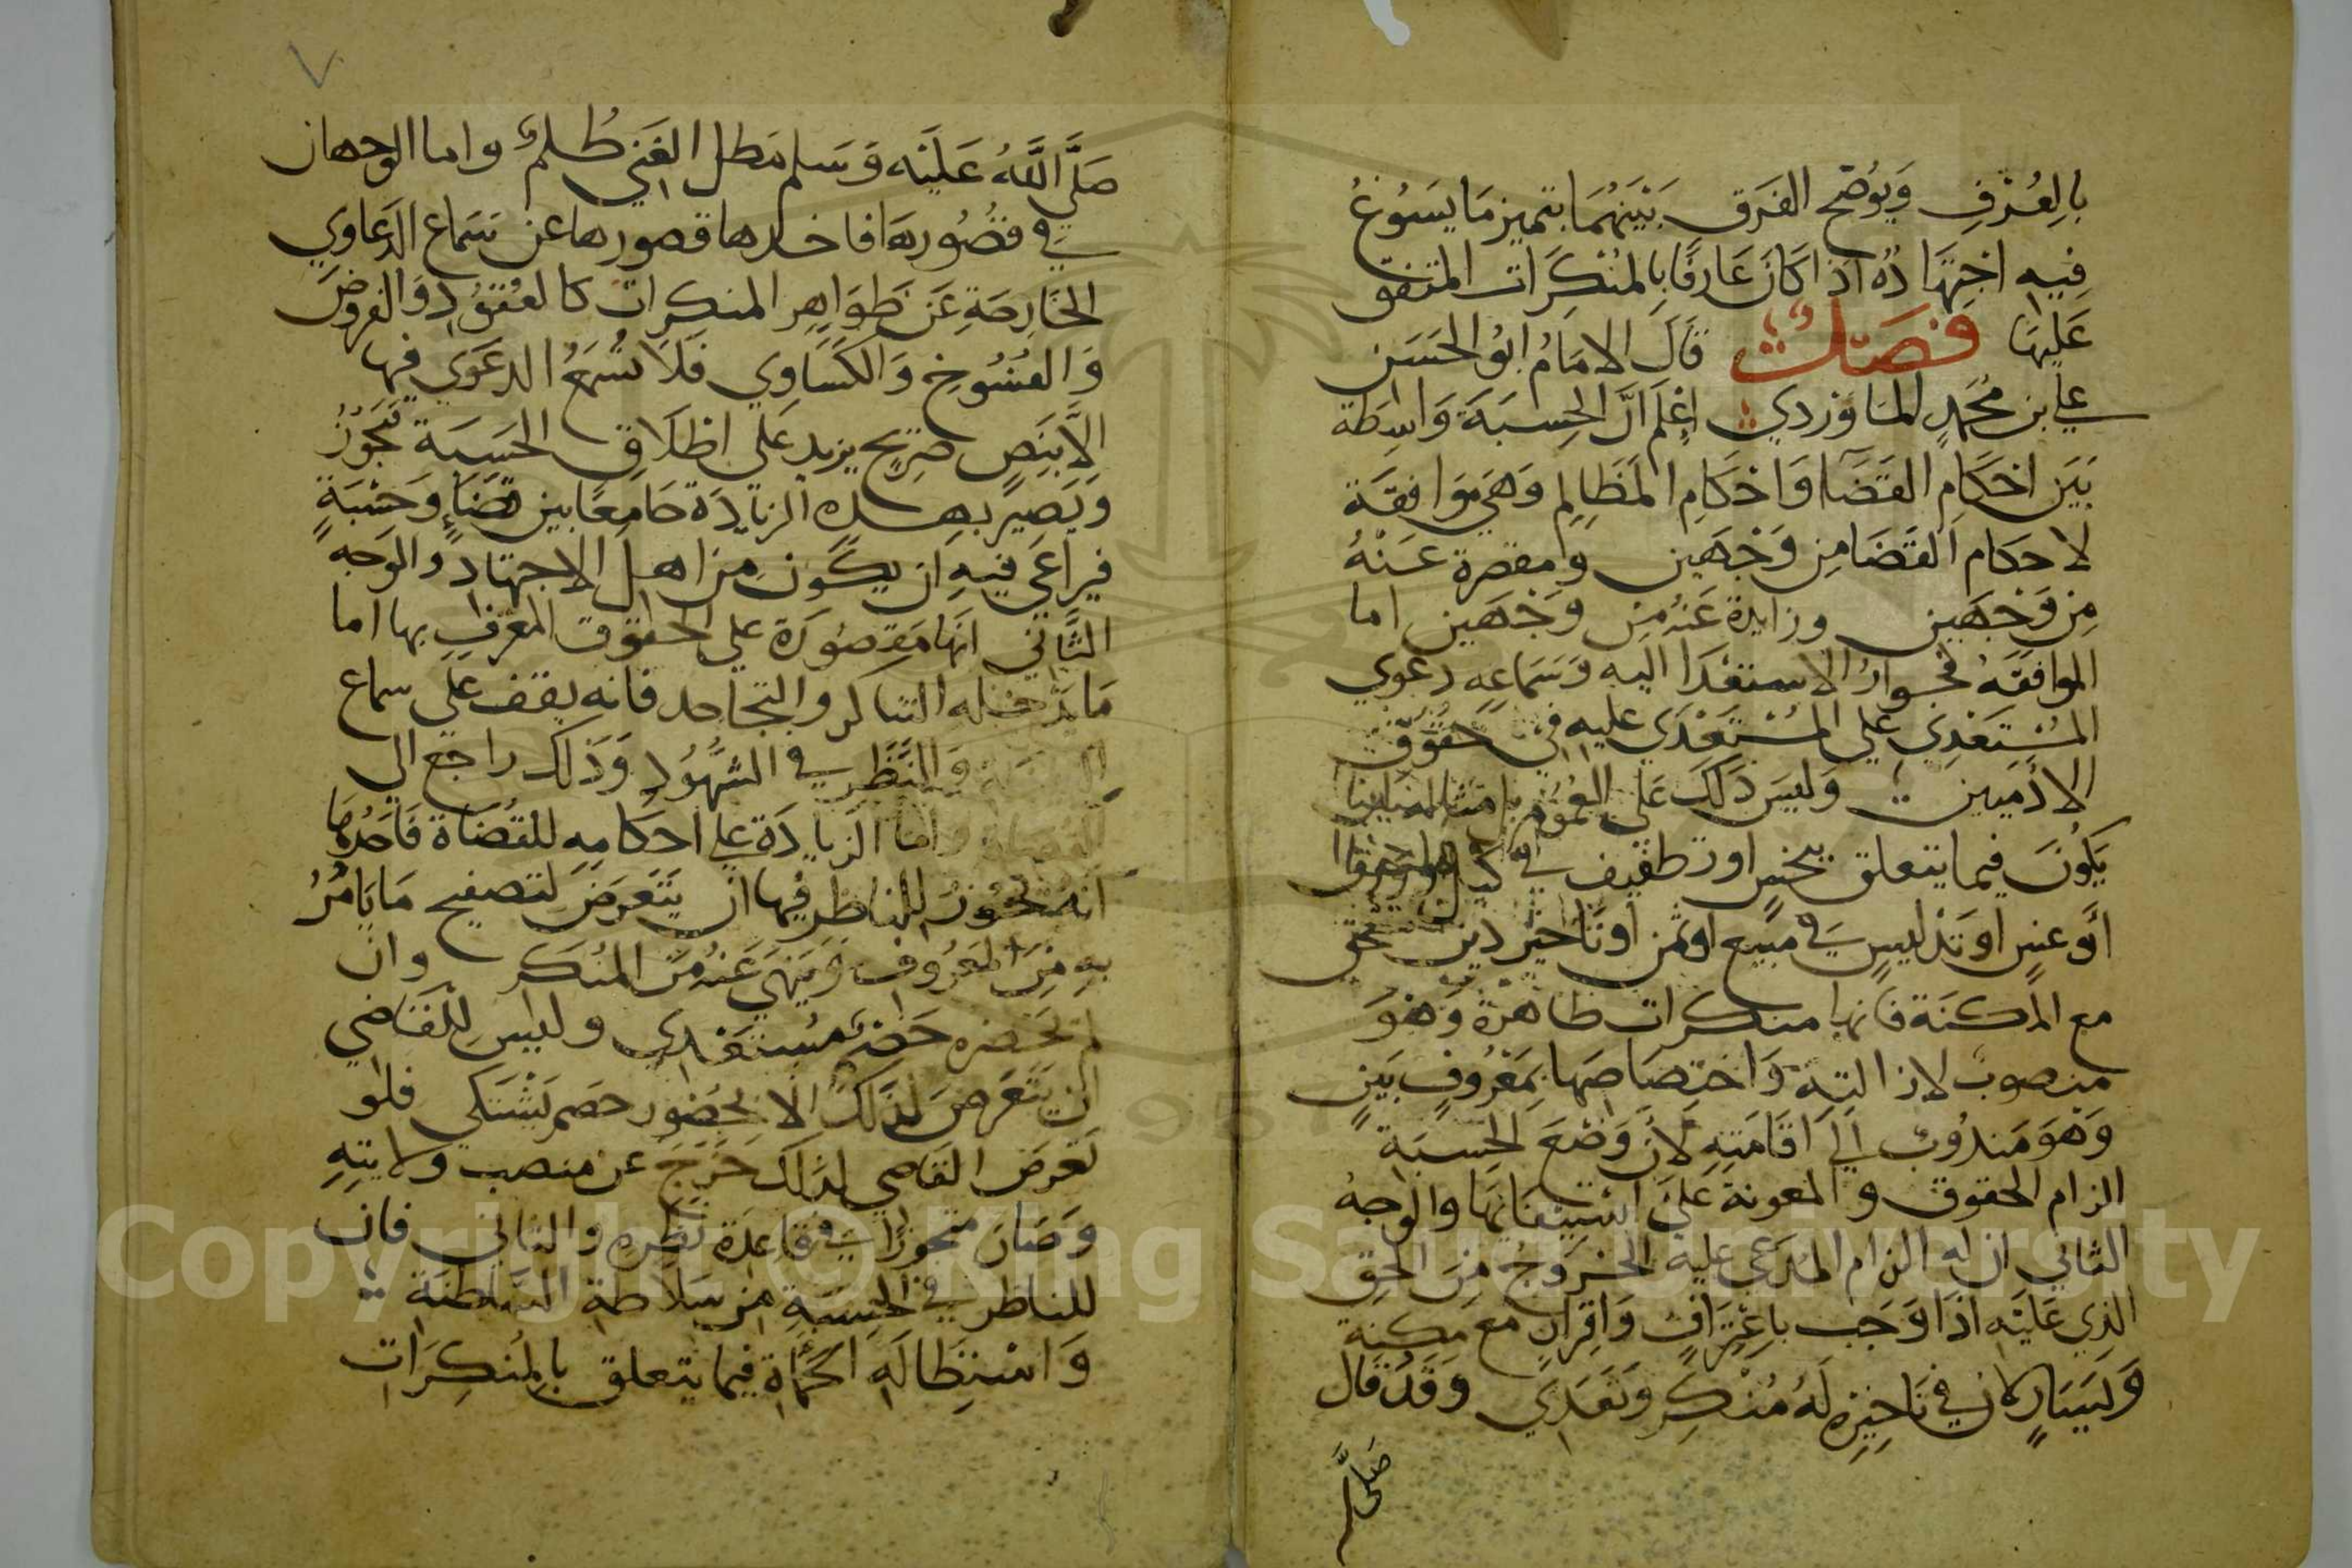 بِالعُرْفِ وَيُوضح الفَرَق بَيْنَهُمَا بتميز مَا يَسُوغُ
فِيهِ اجتهَادُه اذا كانَ عَارِفًا بِالمُنْكَرَات المتفق
عَليهَا فصل قَالَ الامَامُ ابُو الحَسَن
علي بن مُحَمدٍ الماوردي اعْلَم انَّ الحِسبَةَ وَاسِطَة
بَيَن احكَامِ القَضَا وَاحكَامِ المَظَالِم وَهي مَوَافقَة
لاحكام القَضَا مِن وَجْهَين ومقصرة عَنْهُ
مِن وَجهَين وزايدة عَنْهُ مِن وَجْهَين اما
الموافقَة فجَوازُ الاستعْدَا اليه وَسَمَاعِهِ دعوي
المُسْتَعْدِي علي المُسْتَعْدَي عليهِ في حقوق
الادَميين وَليسَ ذَلكَ عَلي العمُوم
يَكُونَ فيما يتعلق ببخسٍ او تطفيف في كيل
أو غش او تدليسٍ في مبيع او ثمن او تاخير دين
مع المكنَة فانها منكرات ظاهرَة وَهُوَ
منصوب لازالته وَاختِصَاصَها بمَعْرُوفٍ بَينٍ
وَهوَ مَندُوب الَى اقَامَتِهِ لأنَ وَضْعَ الحسبَة
الزام الحقوق والمعونة عَلَى اسْتيفَائِهَا والوجهُ
الثاني ان له الزام المدَعي عليه الخروجُ مِنَ الحَق
الذِي عَليْهِ اذَا وَجَب باعْتِرَافٍ وَاقرارٍ مع مكنةٍ
وَيَسَارٍ كان في تَاخِيره لَهُ مُنْكِر وَتعَدي وَقَدْ قال
صَلَّى
٧
صَلَّى اللَّهُ عَليْه وَسَلم مَطل الغَنِي ظُلمٌ واما الوجهان
في قصُورهَا فاحدها قصورها عن سَماع الدَعاوي
الخَارِجَةِ عَن ظَوَاهِر المنكرات كالعُقُودِ وَالفروض
وَالفُسُوخ وَالكَسَاوي فلَا تُسْمَعُ الدعوي فيها
الَّا بنَصٍ صَرِيح يزيد عَلي اطلَاق الحَسبَة تَجُوزُ
وَيَصِير بهذه الزيادَة جَامِعًا بين قضَاءٍ وَحسْبَةٍ
فيراعَى فيهِ ان يكون من اهل الاجتهادِ وَالوَجه
الثَّاني انهَا مَقصُورَة علي الحقوق المعترف بها اما
مَا يَدخله التناكر والتجاحد فانه يقف علي سماع
وَالنَّظر في الشهُودِ وَذَلك راجع الي
واما الزيادَة علي احكَامهِ للقُضاة فَاحَدُهما
انه يجُوزُ للناظر فيها ان يَتَعَرضَ لتصفيح مَا يَامُرُ
بهِ مِنَ المَعرُوف وَينهَي عَنْهُ مِن المنُكَر وان
لم يحضره خَصْم مُسْتعْدِي وليس لِلقَاضي
ان يَتَعَرضَ لذلكَ الا بحُضُور خصم يَشْتَكي فلو
تَعرضَ القَاضي لذَلكَ خَرَجَ عن منصب ولايتِهِ
وَصَارَ متجوزًا في قَاعِدَة نظرهِ والثاني فان
للناظر في الحِسبَةِ من سَلاطة السَّلطنَة
وَاسْتِطَالَهِ الحُمَاة فيما يتعلق بالمُنكِرَات
Copyright © King Saud University
1957